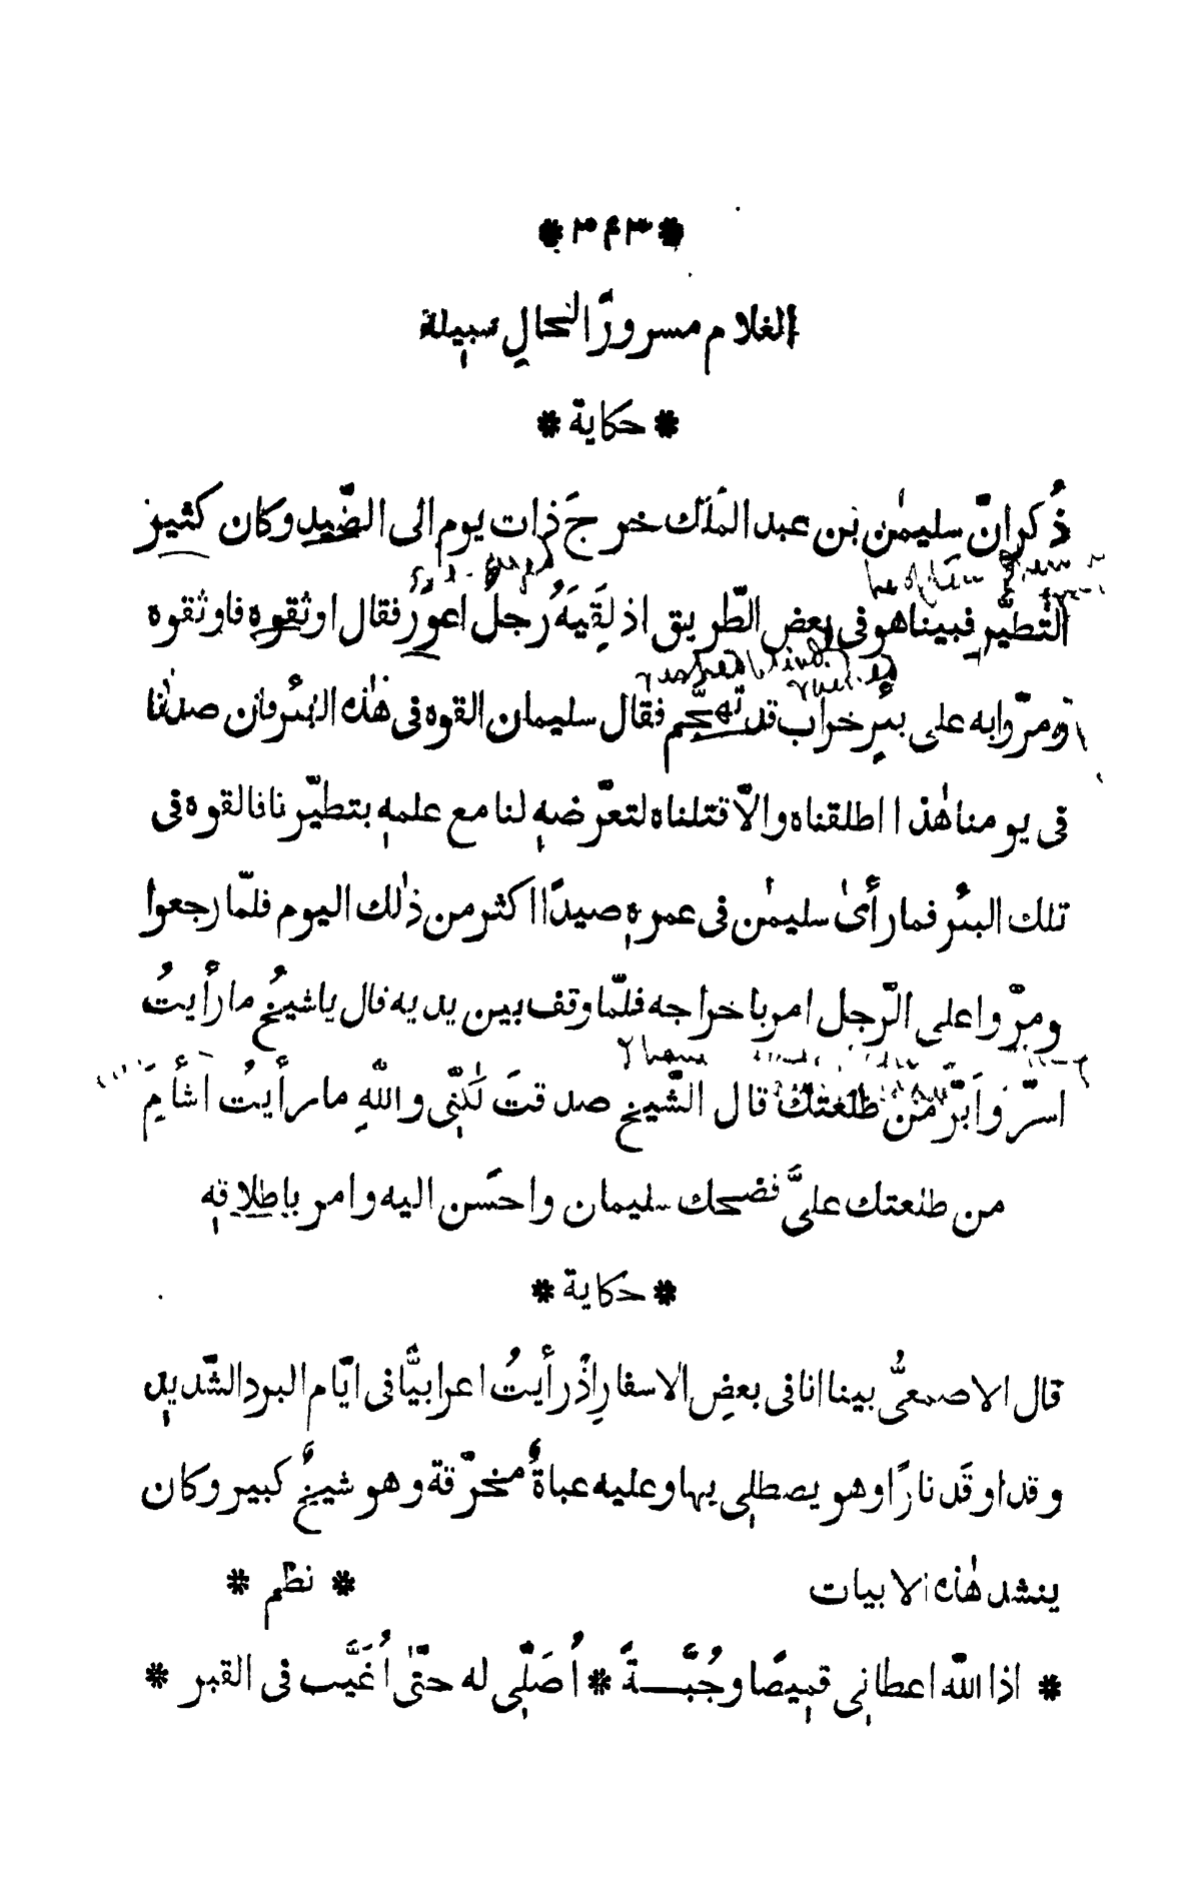 * ٣٤٣ *
الغلام مسرورًا لنحالِ سبيلهٖ
* حكاية *
ذُكر انّ سليمٰن بن عبد الملك خرجَ ذات يوم الى الصّيد وكان كثير
التطيّرِ فبينا هو فى بعض الطّريق اذ لقيَهُ رجلٌ اعوَرُ فقال اوثقوه فاوثقوه
ومرّوا به على بئرٍ خراب قد تهجّم فقال سليمان القوه فى هٰذه البئر فان صدنا
فى يومنا هٰذا اطلقناه والّا قتلناه لتعرّضهٖ لنا مع علمهٖ بتطيّرنا فالقوه فى
تلك البئر فما رأىٰ سليمٰن فى عمرهٖ صيدًا اكثر من ذٰلك اليوم فلمّا رجعوا
ومرّوا على الرّجل امر باخراجه فلمّا وقف بين يديه قال ياشيخُ ما رأيتُ
اسرَّ وَاَبرَّ من طلعتك قال الشّيخ صدقتَ لٰكنّى واللّٰهِ ما رأيتُ اشأمَ
من طلعتك علىَّ فضحك سليمان واحسَن اليه وامر باطلاقهٖ
* حكاية *
قال الاصمعىُّ بينا انا فى بعضِ الاسفارِ اِذْ رأيتُ اعرابيًّا فى ايّام البردِ الشّديدِ
وقد اوقَد نارًا وهو يصطلى بها وعليه عباةٌ منخرّقة وهو شيخٌ كبير وكان
ينشد هٰذه الابيات * نظم *
* اذا اللّٰه اعطانى قميصًا وجُبَّــةً * اُصَلّى له حتّىٰ اُغَيَّب فى القبر *